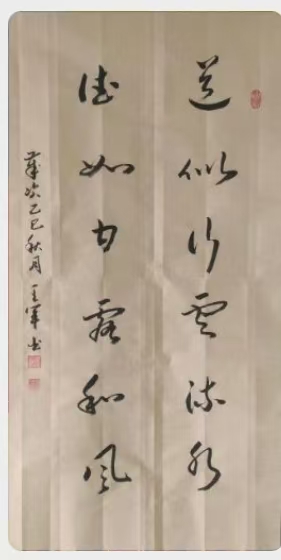 道似行雲流水
德如甘露和風
歲次乙巳秋月 王軍書